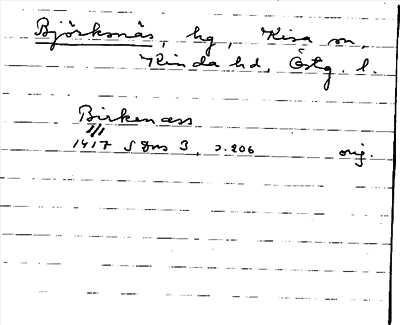 Björksnäs, hg, Kisa sn,
Kinda hd, Östg. l.
Birkenæss
1/1
1417 SDns 3, s. 206 orig.